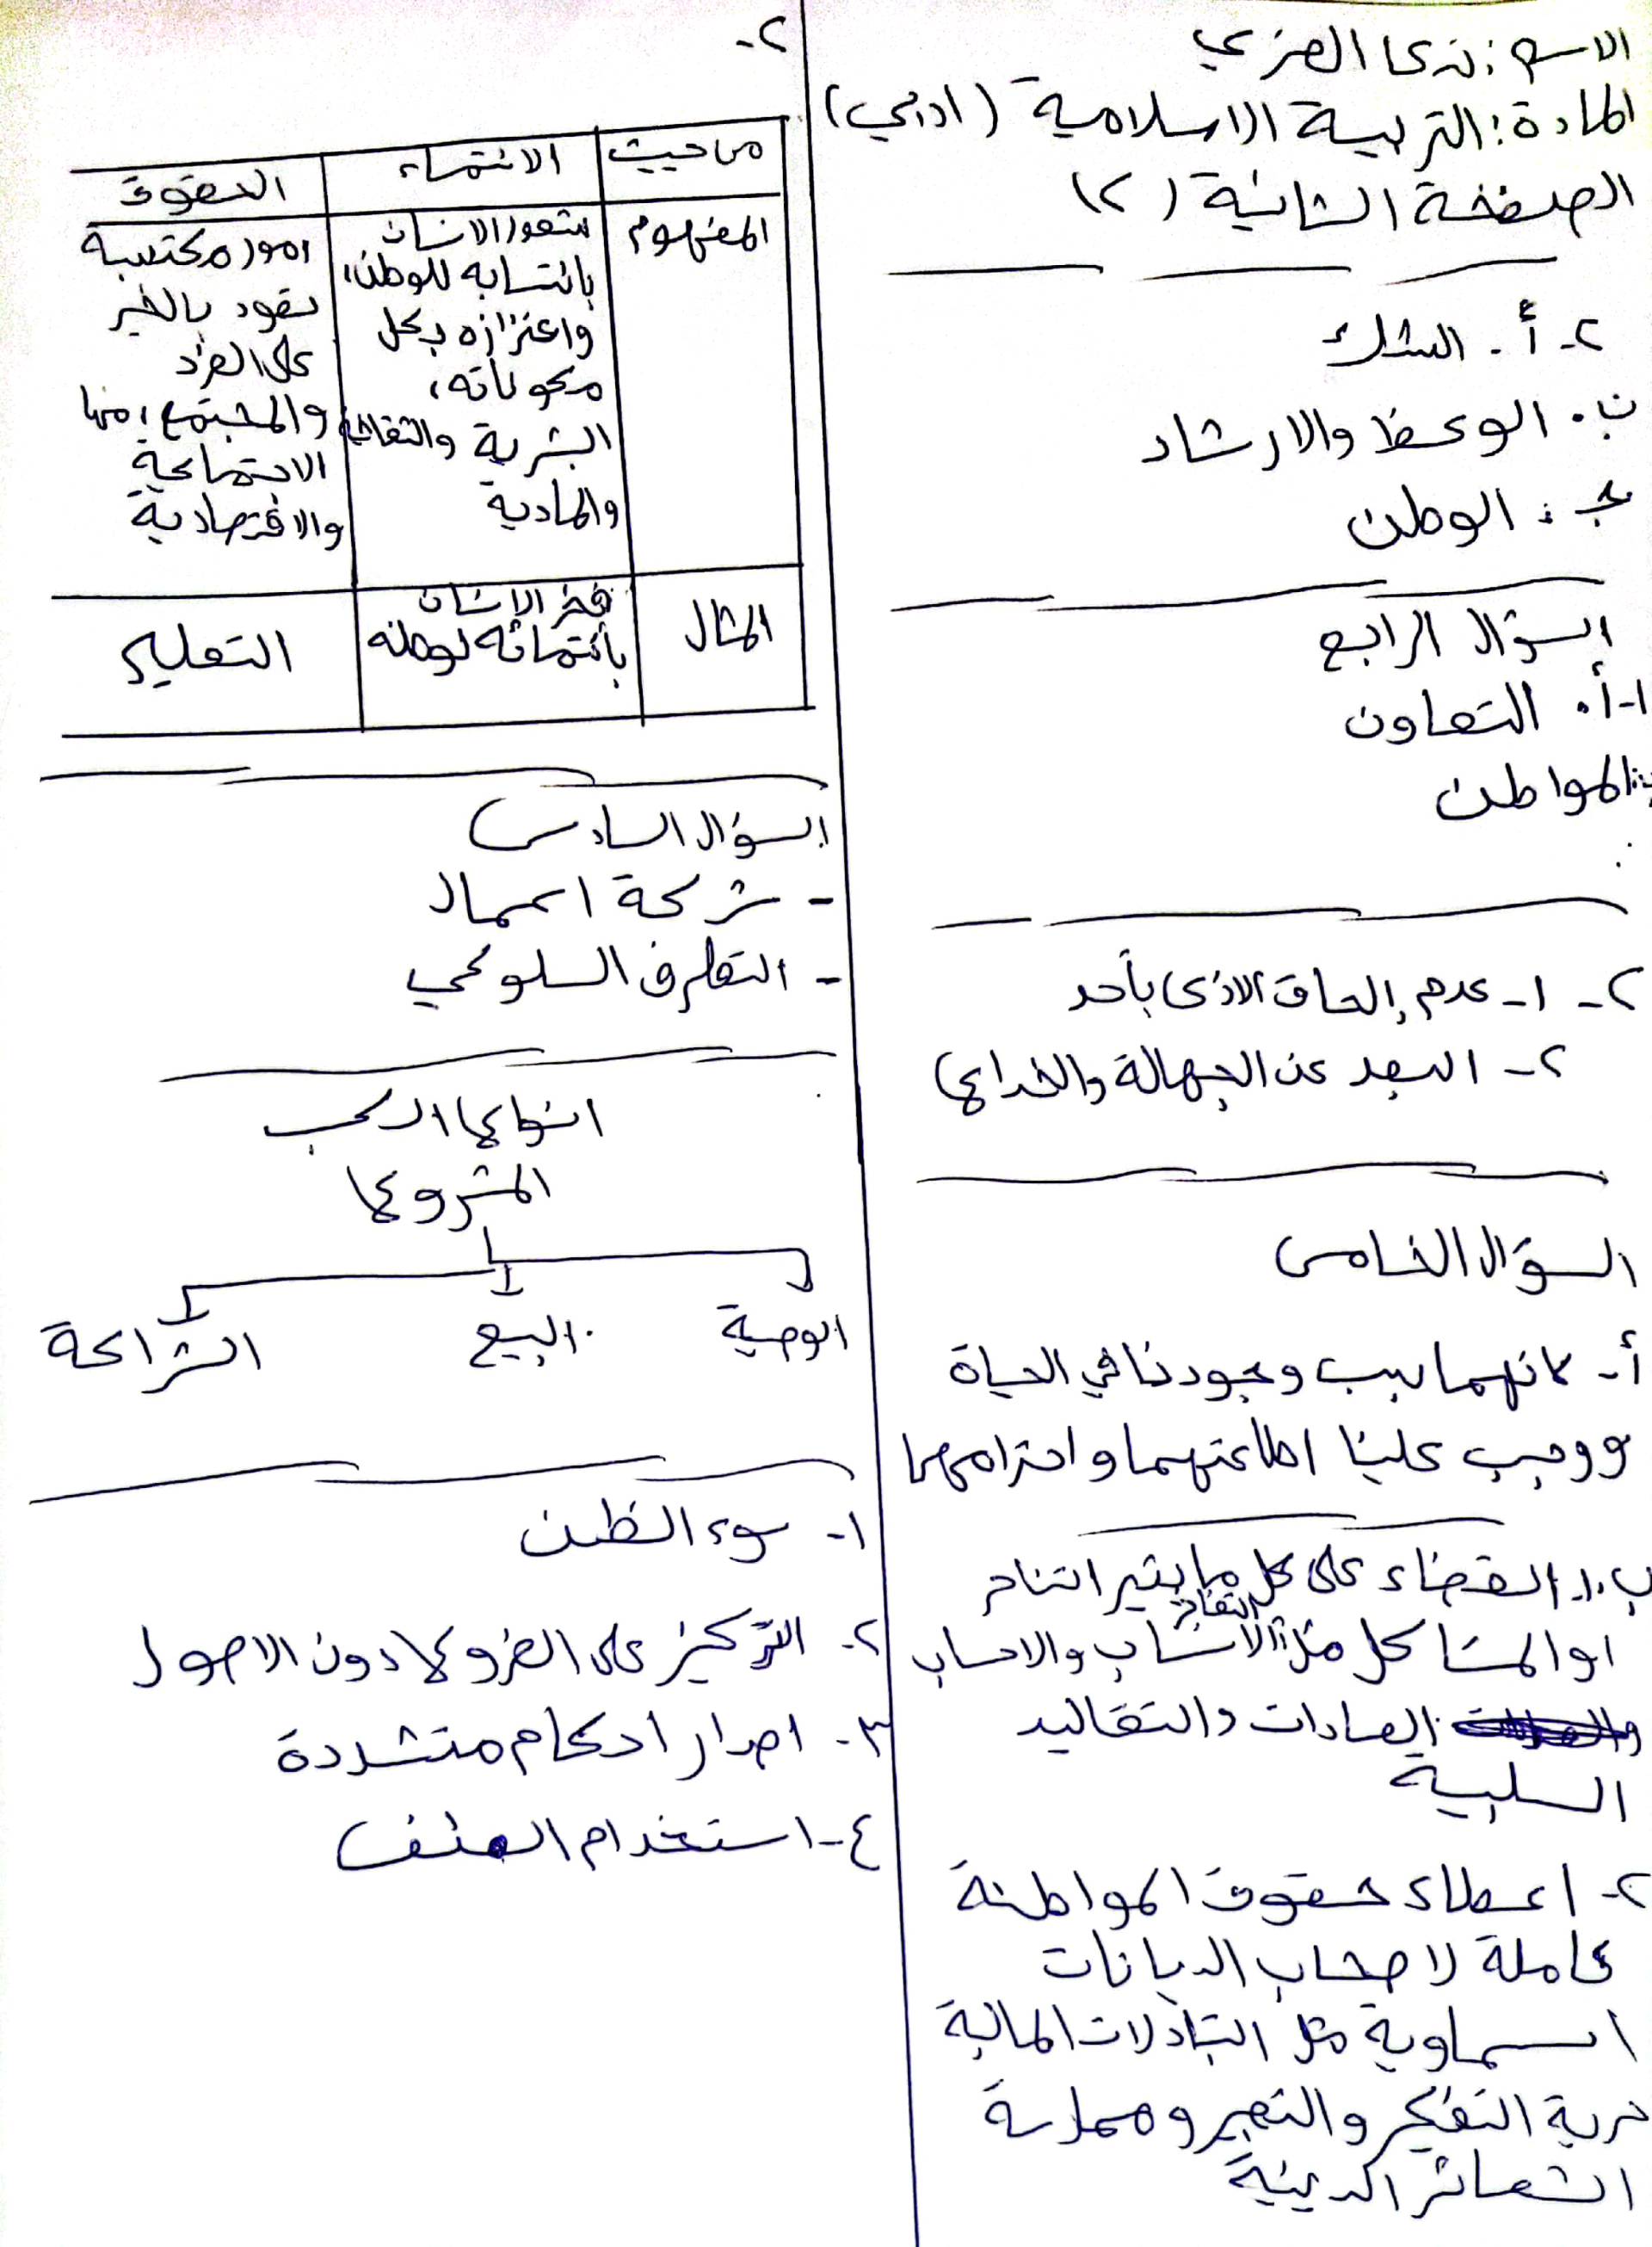 الاسم : ندى العزي
المادة : التربية الاسلامية (ادبي)
الصفحة الثانية (٢)
٢- أ- الشك
ب. الوعظ والارشاد
ج: الوطن
السؤال الرابع
١-أ. التعاون
ب: المواطن
٢- ١- عدم إلحاق الاذى بأحد
٢- البعد عن الجهالة والخداع
السؤال الخامس
أ- لانهما سبب وجودنا في الحياة
ووجب علينا اطاعتهما واحترامهما
ب.١. القضاء على كل ما يثير التناحر
او المشاكل مثل التفاخر الانساب والاحساب
العادات والتقاليد
السلبية
٢- اعطاء حقوق المواطنة
كاملة لاصحاب الديانات
السماوية مثل التبادلات المالية
حرية التفكير والتعبير وممارسة
الشعائر الدينية
٢-
من حيث | الانتماء | الحقوق
المفهوم | شعور الانسان بانتسابه للوطن، واعتزازه بكل مكوناته، البشرية والثقافية والمادية | امور مكتسبة تعود بالخير على الفرد والمجتمع، منها الاجتماعية والاقتصادية
المثال | فخر الانسان بانتمائه لوطنه | التعليم
السؤال السادس
- شركة اعمال
- التطرف السلوكي
انواع الكسب
المشروع
الوصية
البيع
الشراكة
١- سوء الظن
٢- التركيز على الفروع دون الاصول
٣- اصدار احكام متشددة
٤- استخدام العنف